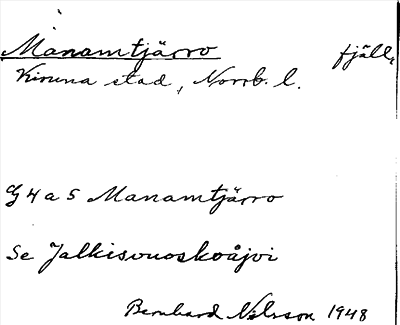 Manamtjärro fjäll,
Kiruna stad, Norrb. l.
4 a 5 Manamtjärro
Se Jalkisvuoskoåjvi
Bernhard Nilsson 1948